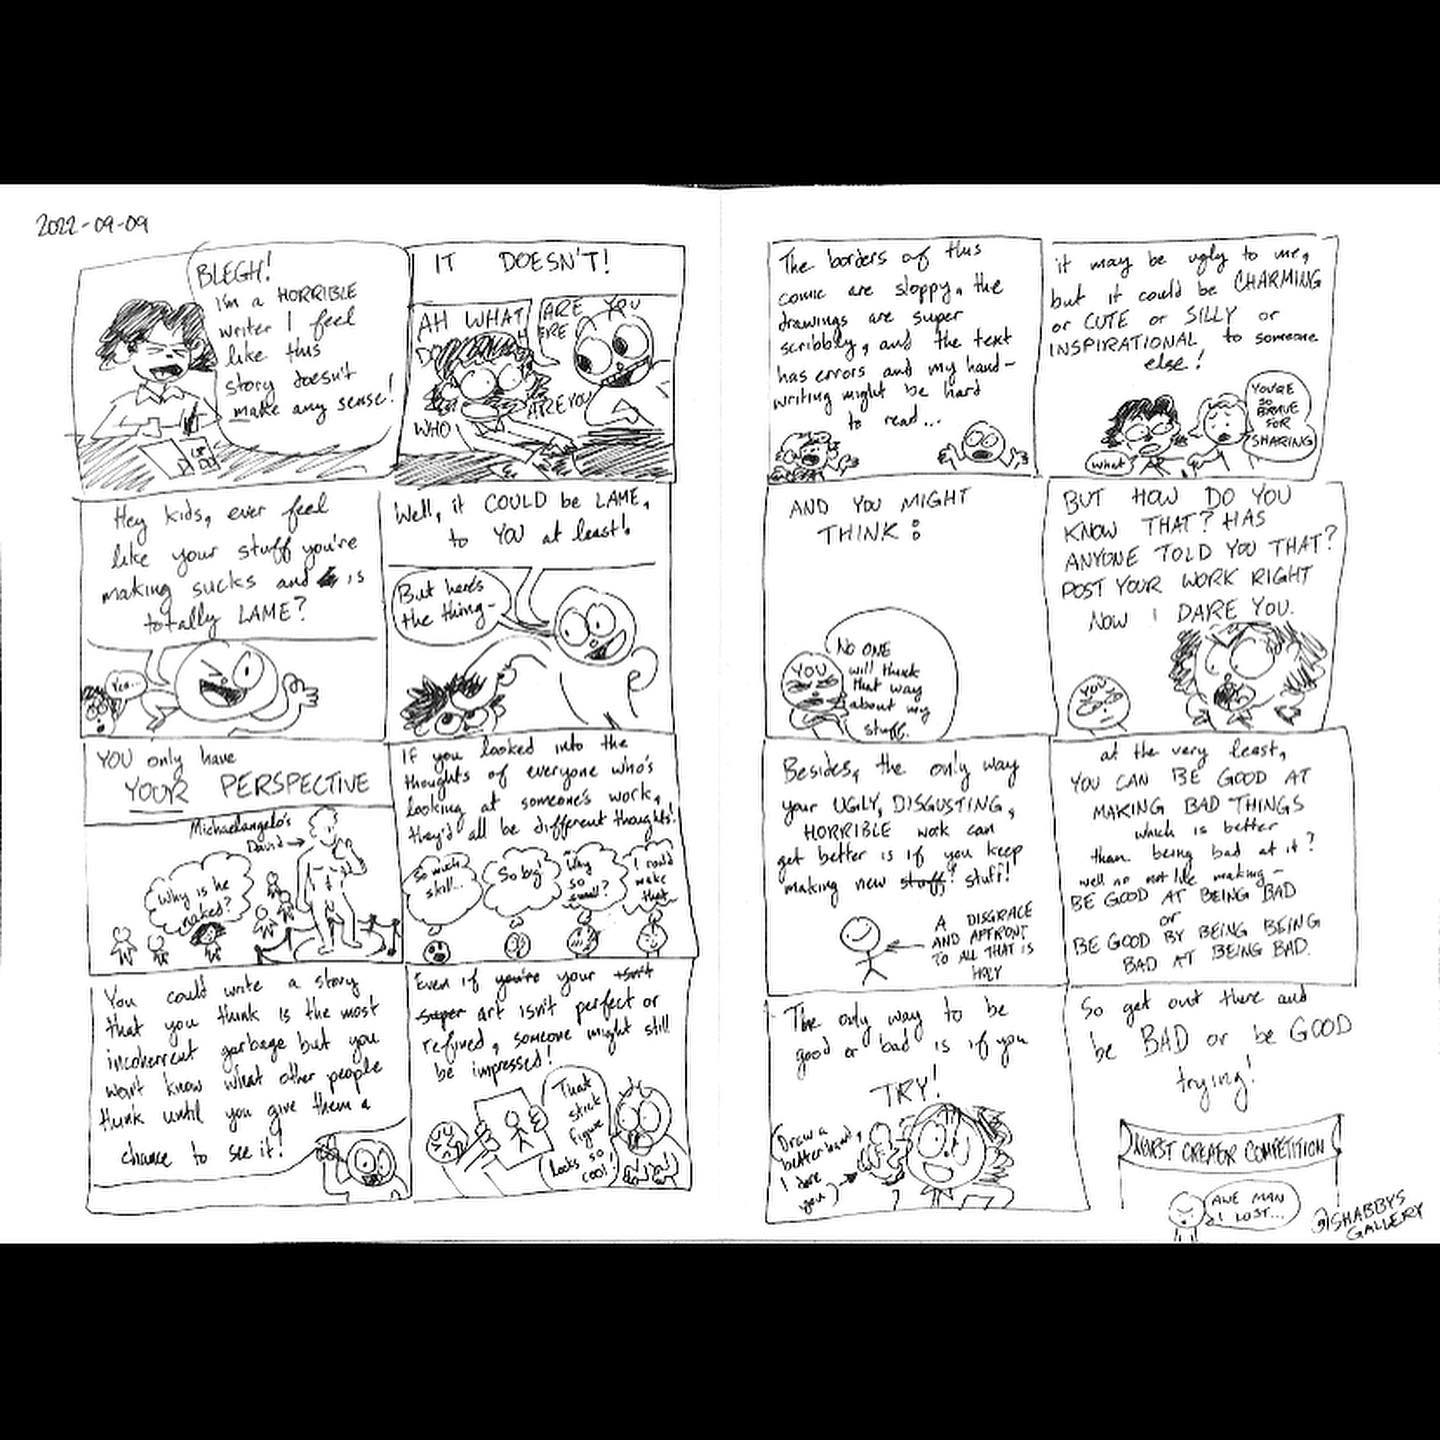 2022-09-09
BLEGH!
I'm a HORRIBLE
writer I feel
like this
story doesn't
make any sense!
IT DOESN'T!
AH WHAT
WHO
ARE YOU
ARE YOU
Hey kids, ever feel
like your stuff you're
making sucks and is
totally LAME?
Yea...
Well, it COULD be LAME,
to YOU at least!
But here's
the thing-
YOU only have
YOUR PERSPECTIVE
Michaelangelo's
David
Why is he
naked?
If you looked into the
thoughts of everyone who's
looking at someone's work,
they'd all be different thoughts!
So much
skill...
So big!
Why
so
small?
I could
make
that
You could write a story
that you think is the most
incoherrent garbage but you
won't know what other people
think until you give them a
chance to see it!
Even if you're your
super art isn't perfect or
refined, someone might still
be impressed!
That
stick
figure
looks so
cool!
The borders of this
comic are sloppy, the
drawings are super
scribbly, and the text
has errors and my hand-
writing might be hard
to read...
it may be ugly to me,
but it could be CHARMING
or CUTE or SILLY or
INSPIRATIONAL to someone
else!
YOU'RE
SO
BRAVE
FOR
SHARING
what
AND YOU MIGHT
THINK:
YOU
No ONE
will think
that way
about my
stuff.
BUT HOW DO YOU
KNOW THAT? HAS
ANYONE TOLD YOU THAT?
POST YOUR WORK RIGHT
NOW I DARE YOU.
YOU
Besides, the only way
your UGLY, DISGUSTING,
HORRIBLE work can
get better is if you keep
making new stuff? stuff!
A DISGRACE
AND AFFRONT
TO ALL THAT IS
HOLY
at the very least,
YOU CAN BE GOOD AT
MAKING BAD THINGS
which is better
than being bad at it?
well no not like making-
BE GOOD AT BEING BAD
or
BE GOOD BY BEING BEING
BAD AT BEING BAD.
The only way to be
good or bad is if you
TRY!
Draw a
better hand,
I dare
you)
So get out there and
be BAD or be GOOD
trying!
WORST CREATOR COMPETITION
AWE MAN
I LOST...
@SHABBYS
GALLERY